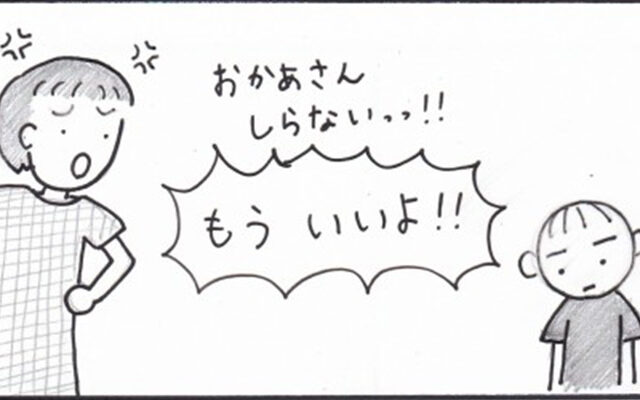 おかあさん
しらないっっ!!
もう いいよ!!